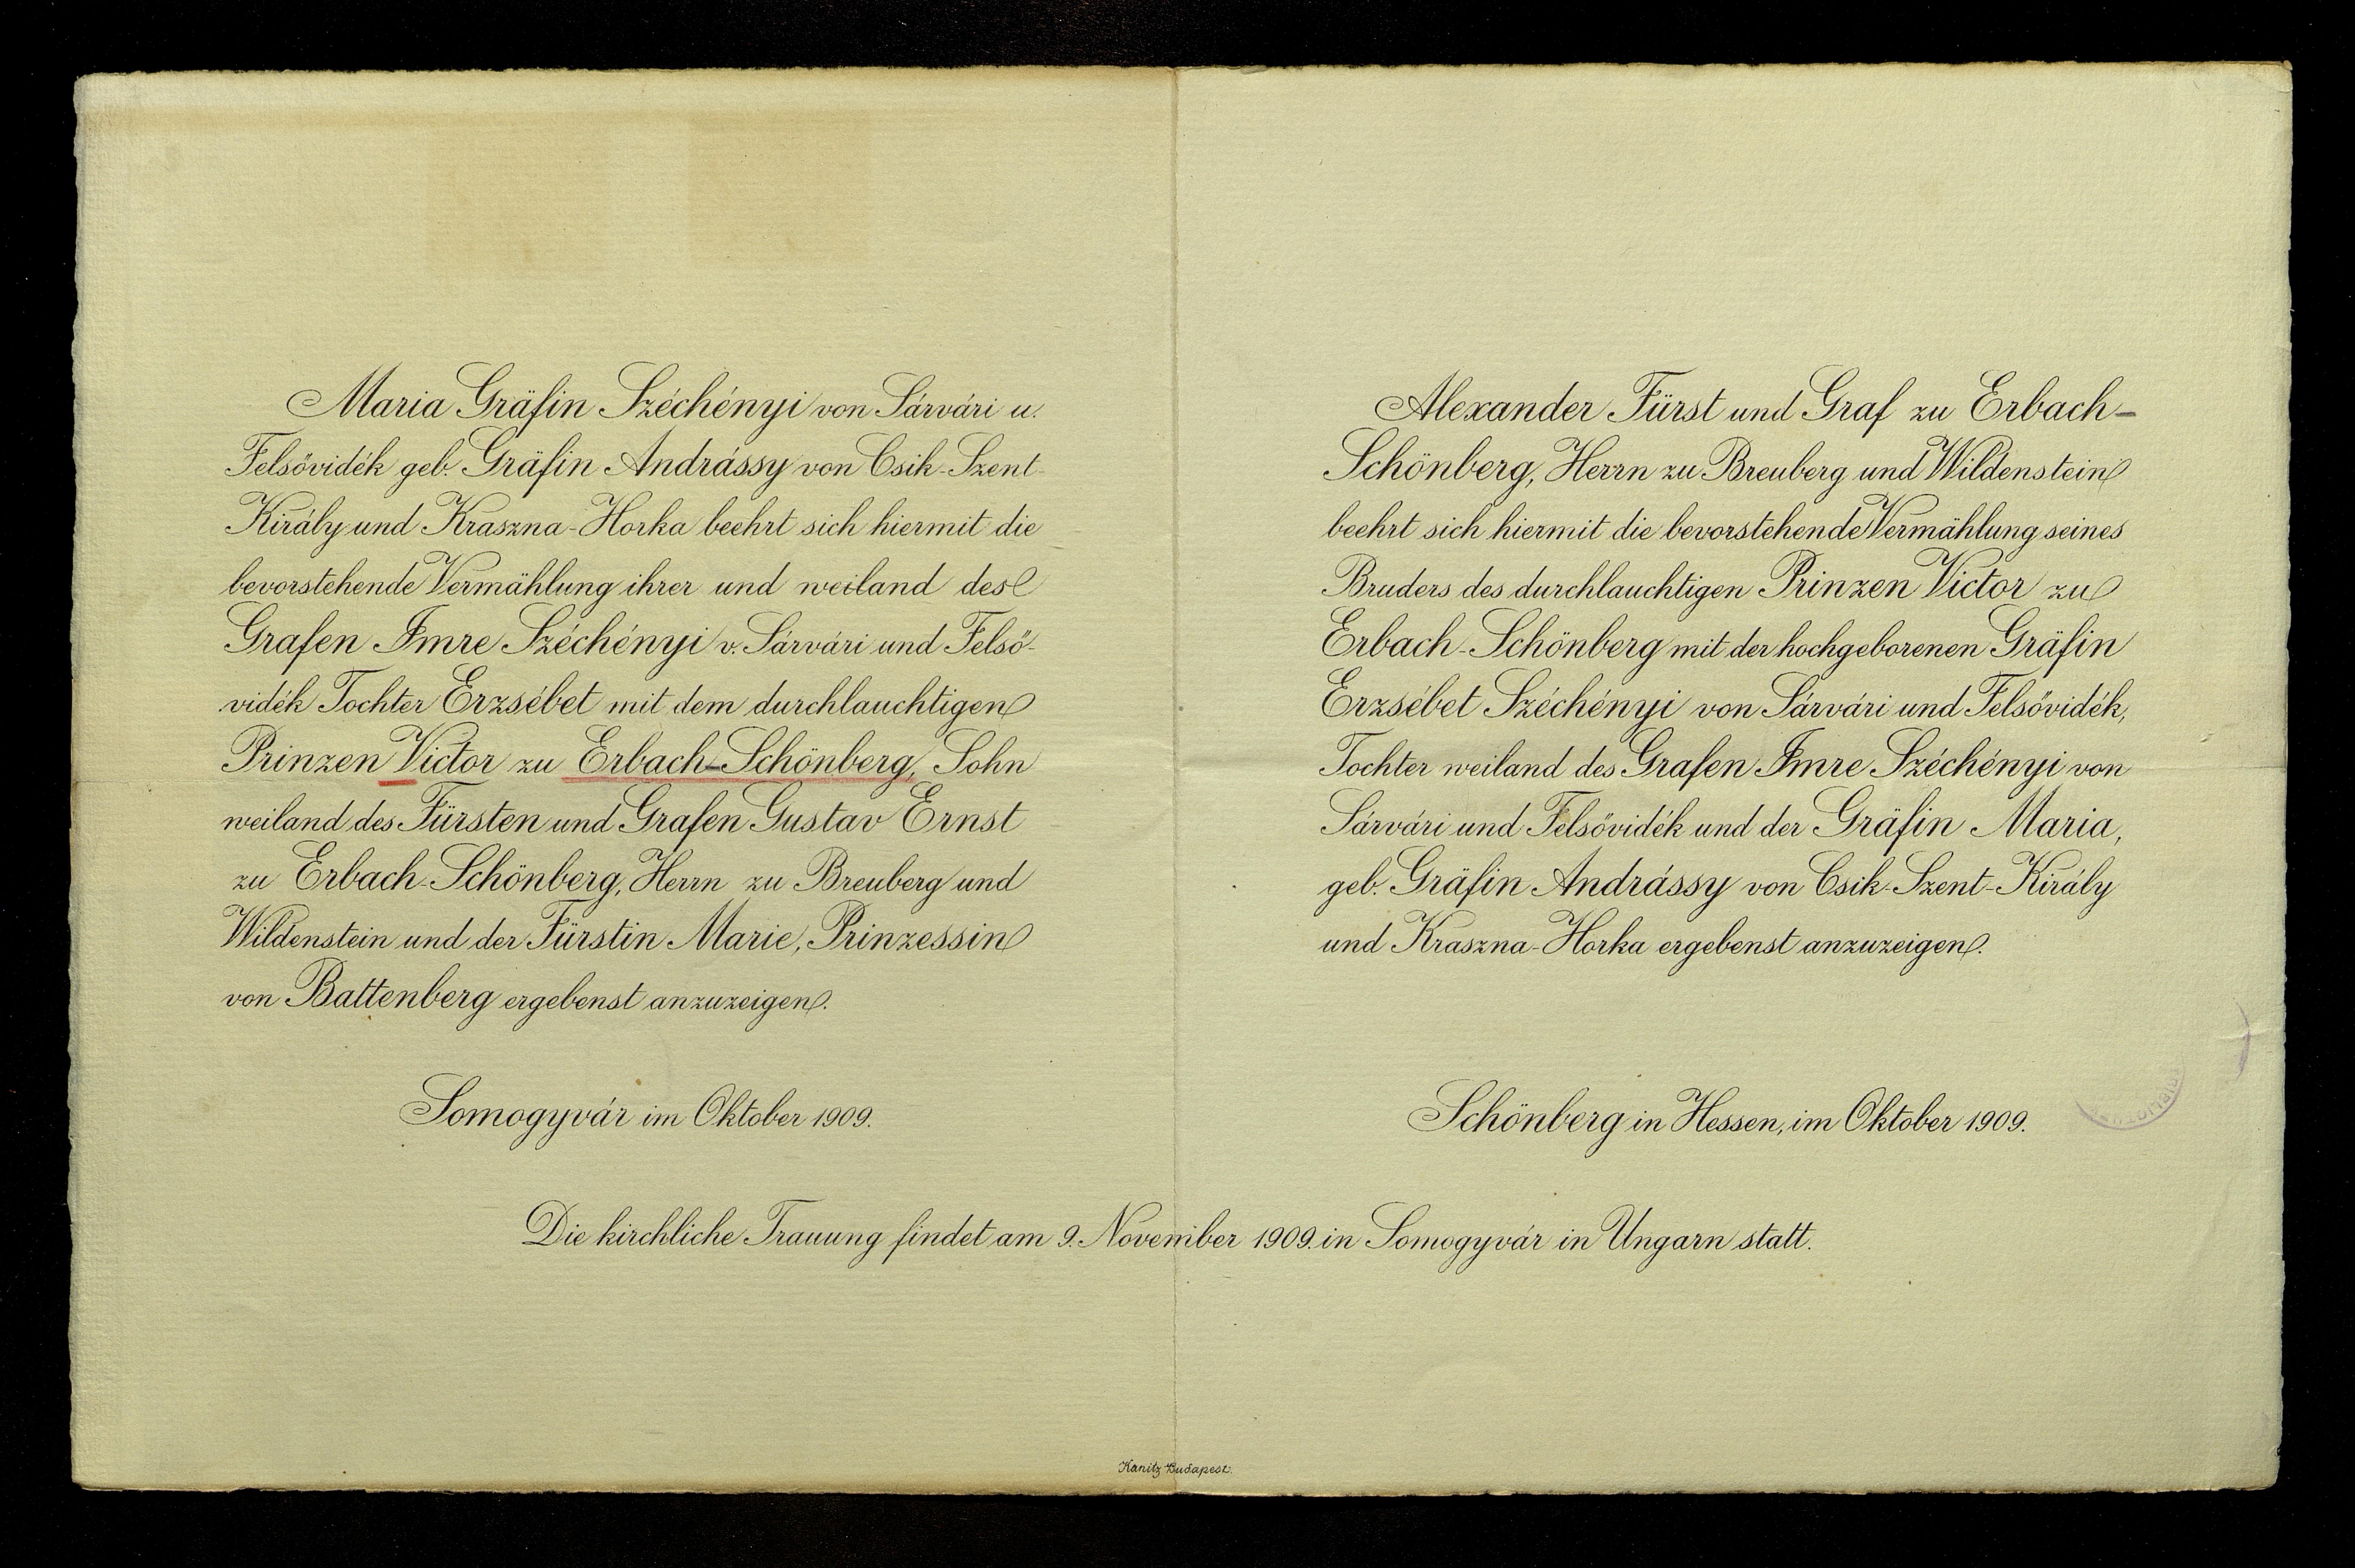 Maria Gräfin Széchényi von Sárvári u.
Felsövidék geb. Gräfin Andrássy von Csik-Szent-
Király und Kraszna-Horka beehrt sich hiermit die
bevorstehende Vermählung ihrer und weiland des
Grafen Imre Széchényi v. Sárvári und Felsö-
vidék Tochter Erzsébet mit dem durchlauchtigen
Prinzen Victor zu Erbach-Schönberg, Sohn
weiland des Fürsten und Grafen Gustav Ernst
zu Erbach-Schönberg, Herrn zu Breuberg und
Wildenstein und der Fürstin Marie, Prinzessin
von Battenberg ergebenst anzuzeigen.
Somogyvár im Oktober 1909.
Alexander Fürst und Graf zu Erbach-
Schönberg, Herrn zu Breuberg und Wildenstein
beehrt sich hiermit die bevorstehende Vermählung seines
Bruders des durchlauchtigen Prinzen Victor zu
Erbach-Schönberg mit der hochgeborenen Gräfin
Erzsébet Széchényi von Sárvári und Felsövidék,
Tochter weiland des Grafen Imre Széchényi von
Sárvári und Felsövidék und der Gräfin Maria,
geb. Gräfin Andrássy von Csik-Szent-Király
und Kraszna-Horka ergebenst anzuzeigen.
Schönberg in Hessen, im Oktober 1909.
Die kirchliche Trauung findet am 9. November 1909. in Somogyvár in Ungarn statt.
Kanitz Budapest.